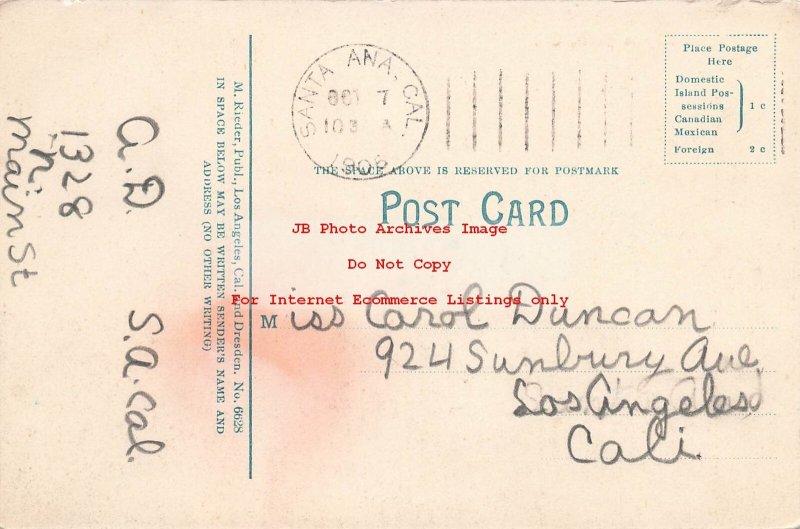 a. D. S. a. Cal.
1328
N.
Main St
M. Rieder, Publ., Los Angeles, Cal. and Dresden. No. 6628
IN SPACE BELOW MAY BE WRITTEN SENDER'S NAME AND
ADDRESS (NO OTHER WRITING)
SANTA ANA, CAL.
7
A
1908
Place Postage
Here
Domestic
Island Pos-
sessions
Canadian
Mexican
1 c
Foreign 2 c
THE SPACE ABOVE IS RESERVED FOR POSTMARK
POST CARD
JB Photo Archives Image
Do Not Copy
For Internet Ecommerce Listings only
Miss Carol Duncan
924 Sunbury Ave.
Los Angeles
Cali.